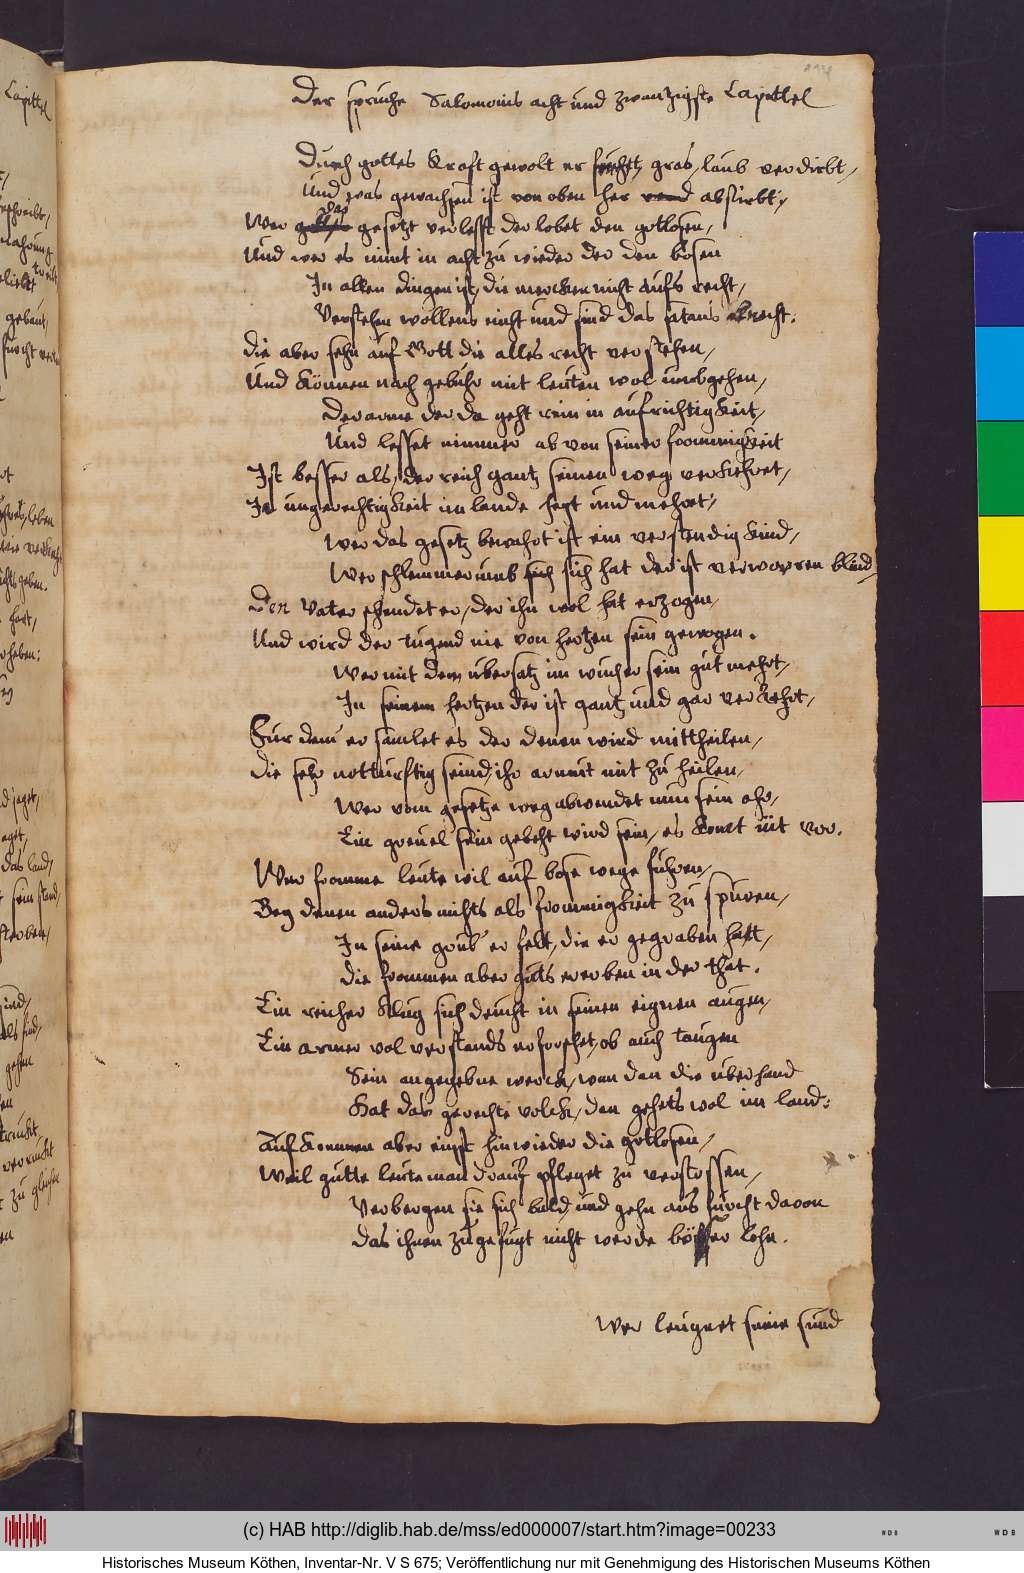 Der spruche Salomonis acht und zwantzigste Capittel
Durch gottes Kraft gewolt er gras, laub verdirbt,
Und was gewachsen ist von oben her abstirbt,
Wer das gesetzt verlesst der lobet den gotlosen,
Und wer es nimt in acht zu wieder der den bosen
In allen dingen ist, die mercken nicht aufs recht,
Verstehen wollens nicht und sind das satans knecht.
Die aber sehn auf Gott die alles recht verstehen,
Und können nach gebuhr mit leuten wol umbgehen,
Der arme der da geht rein in aufrichtigkeit,
Und lesset nimmer ab von seiner frommigkeit
Ist besser als, der reich gantz seinen weg verkehret,
In ungerechtigkeit im lande hegt und mehret,
Wer das gesetz bewahrt ist ein verstendig kind,
Wer schlemmer umb sich hat der ist verworren blind,
Den Vater schendet er, der ihn wol hat erzogen,
Und wird der tugend nie von hertzen sein gewogen.
Wer mit dem ubersatz im wucher sein gut mehrt,
In seinem hertzen der ist gantz und gar verkehrt,
Fur dem er samlet es der denen wird mittheilen,
Die sehr notturftig seind, ihr armut mit zu heilen,
Wer vom gesetze weg abwendet nun sein ohr,
Ein greuel sein gebeht wird sein, es komt nit vor.
Wer fromme leute wil auf bose wege fuhren,
Bey denen anders nichts als frommigkeit zu spuren,
In seine grub er felt, die er gegraben hatt,
Die frommen aber guts ererben in der that.
Ein reicher klug sich deucht in seinen eignen augen,
Ein armer vol verstands erforschet, ob auch taugen
Sein angegebne werck, wan dan die uberhand
Hat das gerechte volck, dan gehets wol im land:
Aufkommen aber einst hinwieder die gotlosen,
Weil gutte leute man drauf pfleget zu verstossen,
Verbergen sie sich bald und gehn aus furcht davon
Das ihnen zugefugt nicht werde böser lohn.
Wer leugnet seine sund
(c) HAB http://diglib.hab.de/mss/ed000007/start.htm?image=00233
Historisches Museum Köthen, Inventar-Nr. V S 675; Veröffentlichung nur mit Genehmigung des Historischen Museums Köthen